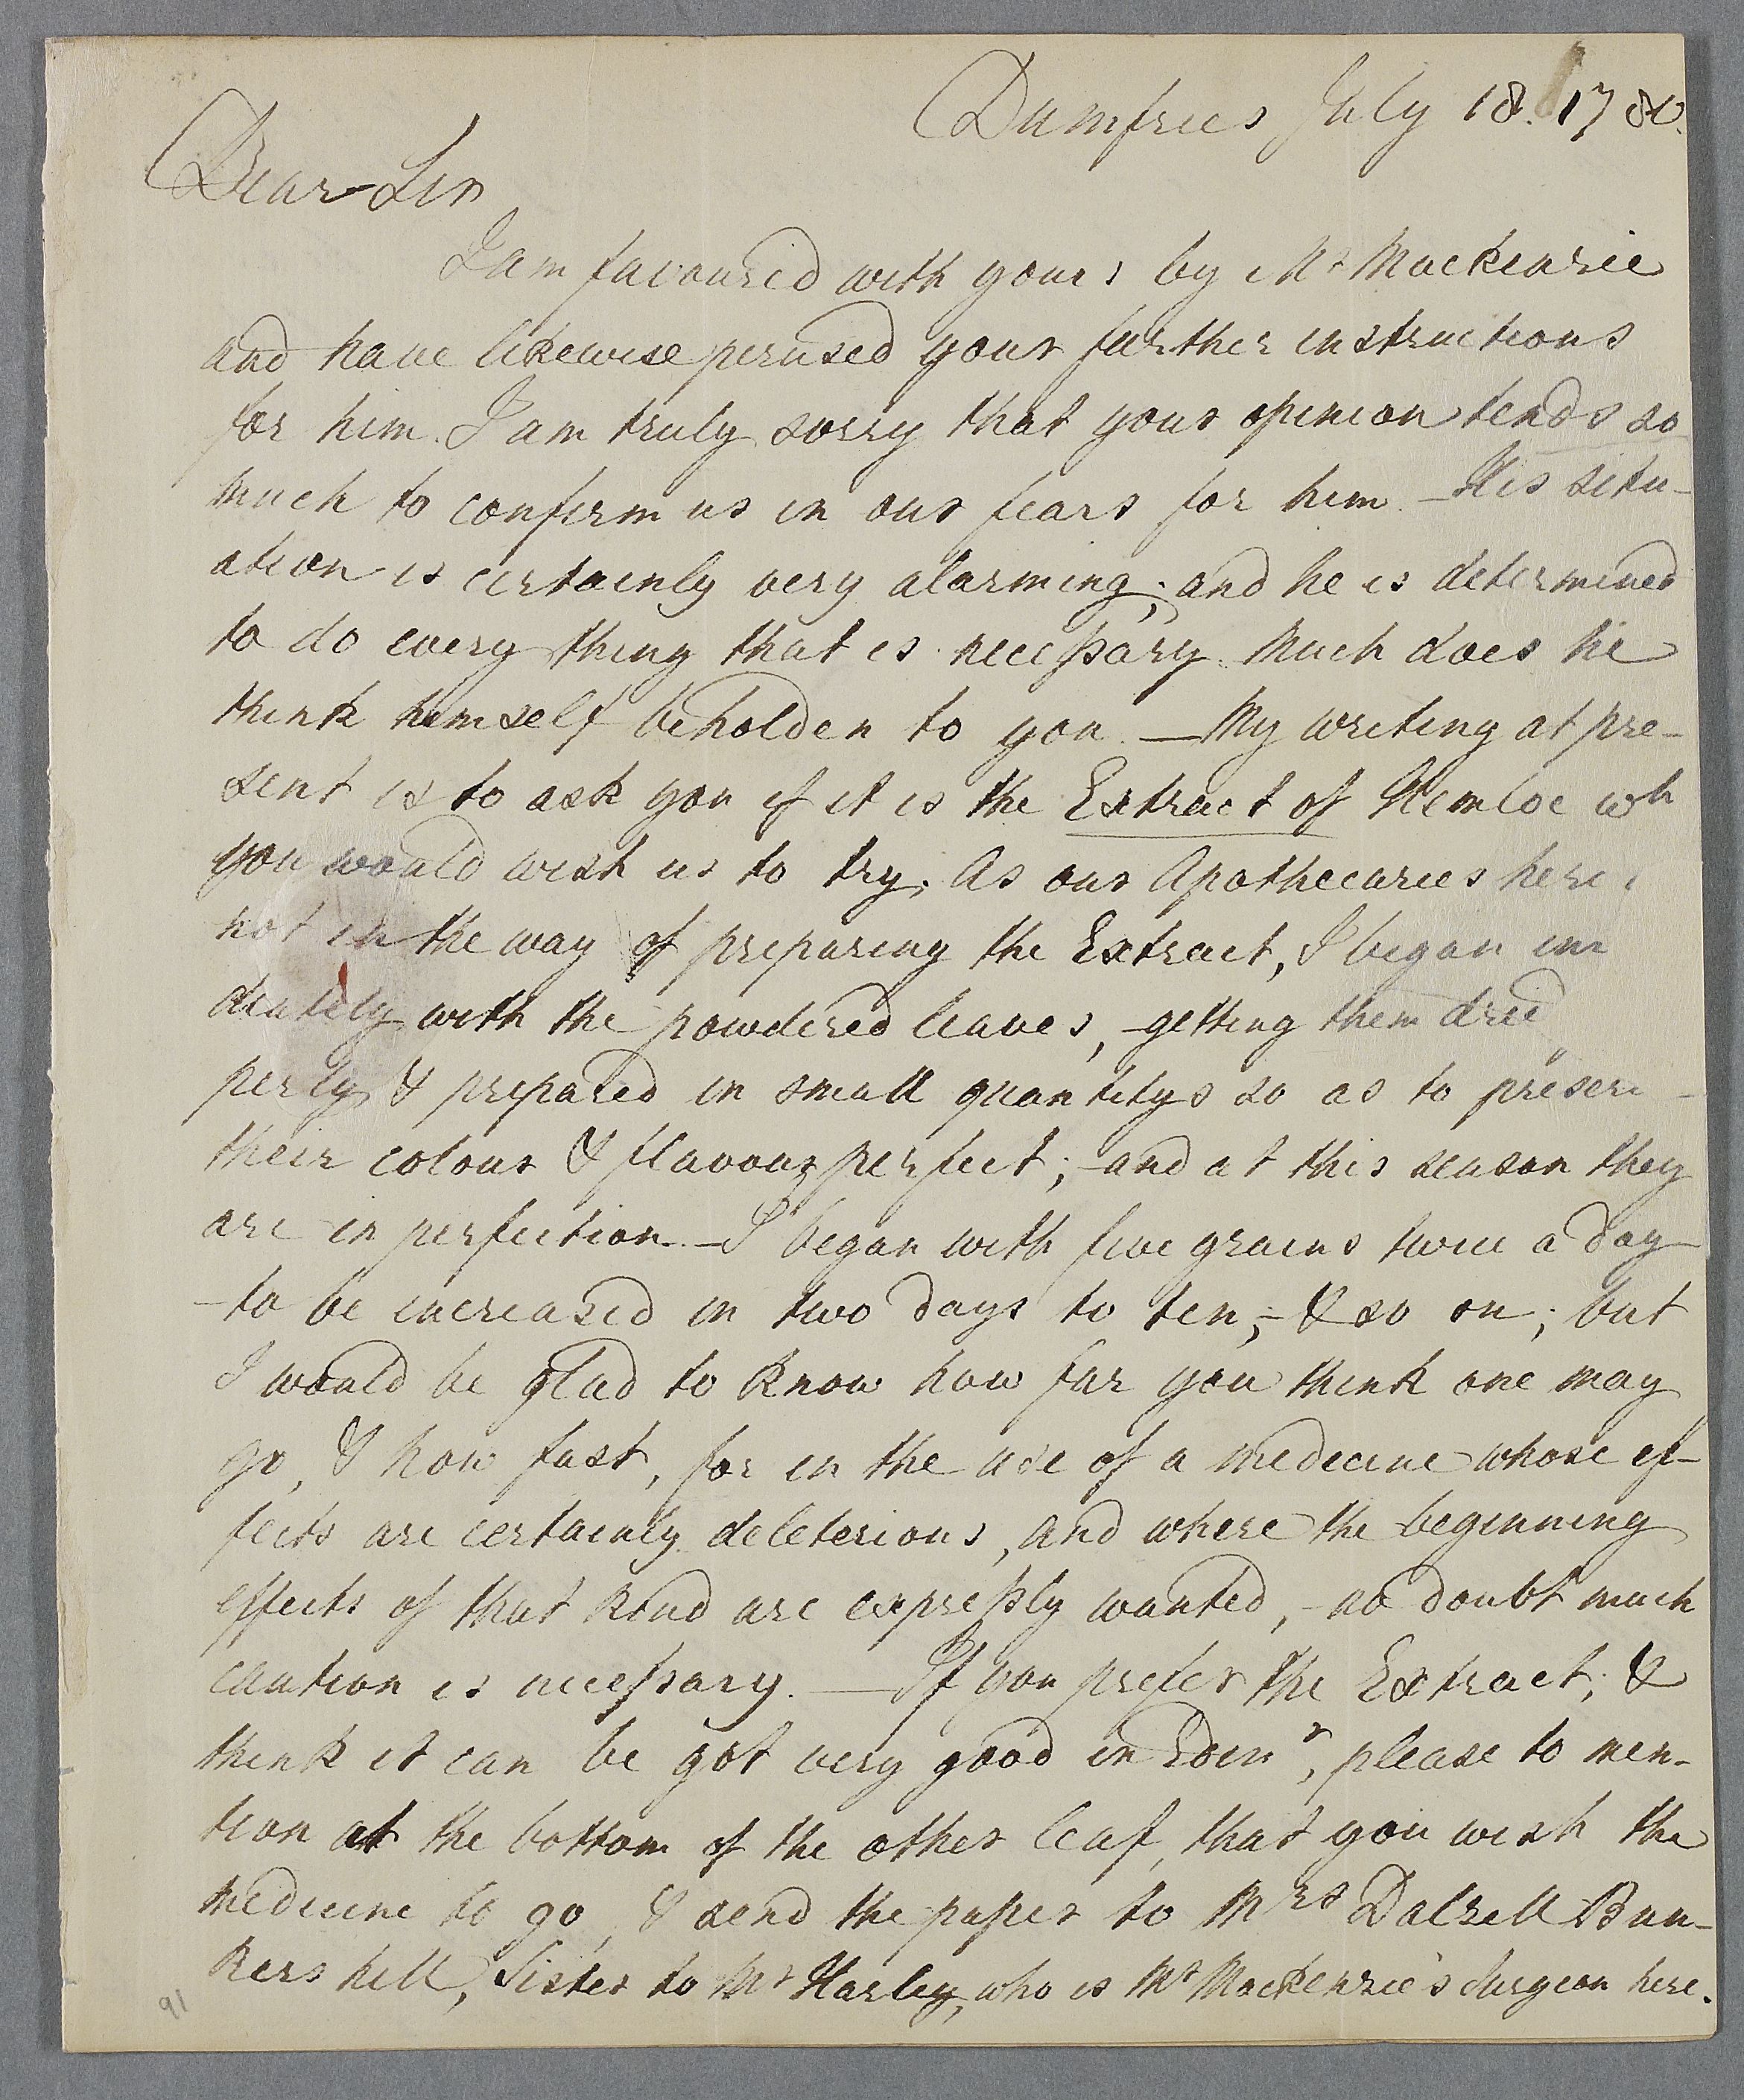 Dumfries July 18. 1780.
Dear Sir
I am favoured with yours by Mr Mackenzie
and have likewise perused your further instructions
for him. I am truly sorry that your opinion tends so
much to confirm us in our fears for him. – His situ-
ation is certainly very alarming; and he is determined
to do every thing that is necessary. Much does he
think himself beholden to you. — My writing at pre-
sent is to ask you if it is the Extract of Hemloc wh
you would wish us to try; As our Apothecaries here
not in the way of preparing the Extract, I began im
diately with the powdered leaves, – getting them dried
perly & prepared in small quantitys so as to preser
their colour & flavour perfect; – and at this season they
are in perfection. – I began with five grains twice a day
– to be increased in two days to ten, – & so on; but
I would be glad to know how far you think one may
go, & how fast, for in the use of a medecine whose ef-
fects are certainly deleterious, and where the beginning
effects of that kind are expressly wanted, – no doubt much
caution is necessary. — If you prefer the Extract, &
think it can be got very good in Edinr, please to men-
tion at the bottom of the other leaf, that you wish the
medecine to go, & send the paper to Mrs Dalzell Bun-
kers hill, Sister to Mr Harley, who is Mr Mackenzie's surgeon here.
91